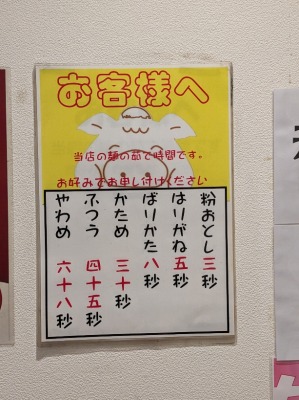 お客様へ
当店の麺の茹で時間です。
お好みでお申し付けください
粉おとし 三秒
はりがね 五秒
ばりかた 八秒
かため 三十秒
ふつう 四十五秒
やわめ 六十八秒